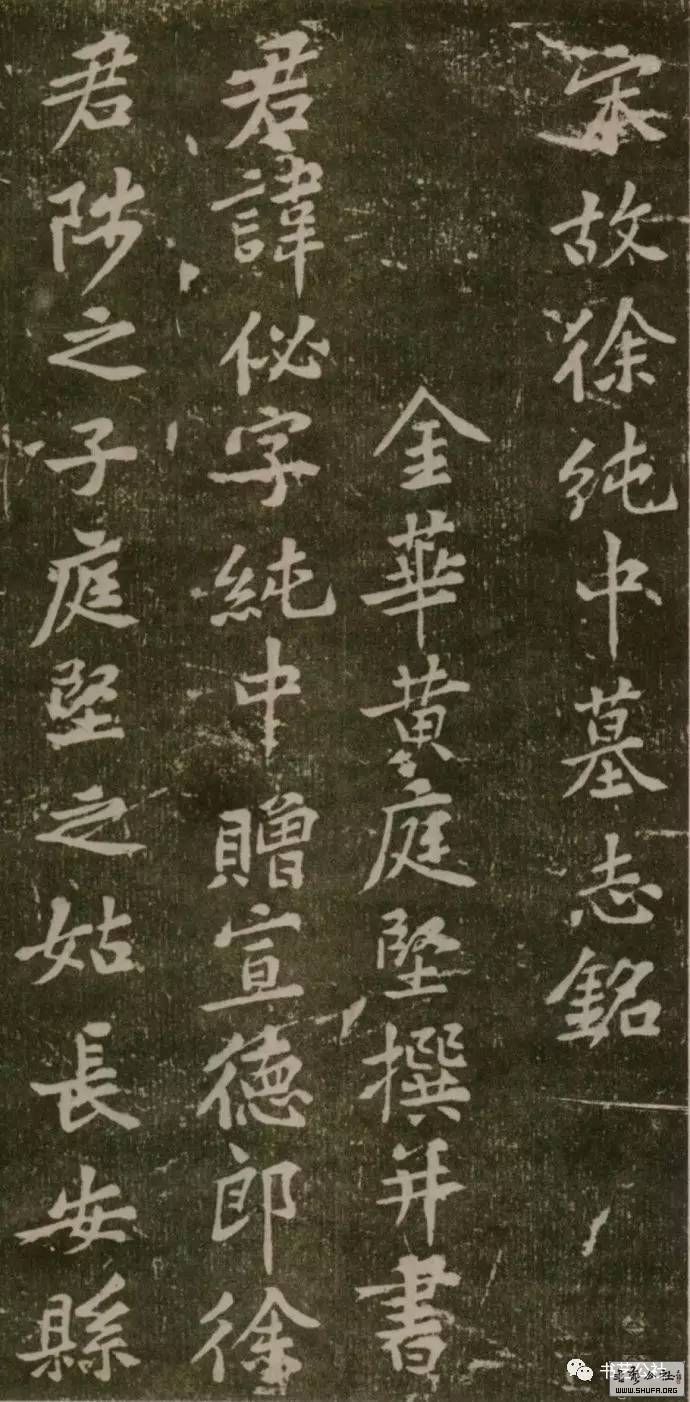 宋故徐純中墓志銘
金華黄庭堅撰并書
君諱佖字純中贈宣德郎徐
君陟之子庭堅之姑長安縣
书艺公社
WWW.SHUFA.ORG